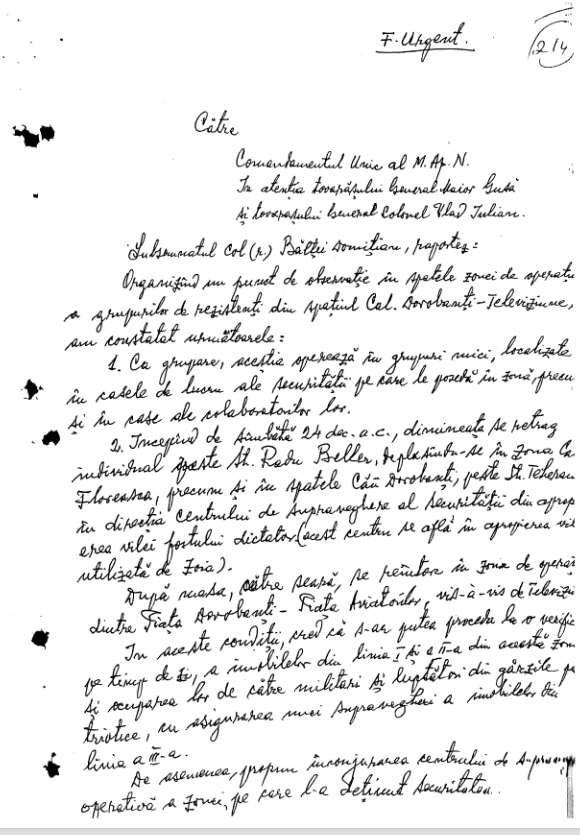 F. Urgent.
214
Către
Comandamentul Unic al M.Ap.N.
În atenția tovarășului General Maior Gușă
și tovarășului General Colonel Vlad Iulian.
Subsemnatul Col (r) Bâlței Domițian, raportez:
Organizînd un punct de observație în spatele zonei de operați
a grupurilor de rezistenți din spațiul Cal. Dorobanți-Televiziune,
am constatat următoarele:
1. Ca grupare, aceștia operează în grupuri mici, localizate
în casele de lucru ale securității pe care le posedă în zonă, precu
și în case ale colaboratorilor lor.
2. Începînd de sîmbătă 24 dec. a.c., dimineața se retrag
individual peste Str. Radu Beller, deplasîndu-se în zona Ca
Floreasca, precum și în spatele Căii Dorobanți, peste Str. Teheran
în direcția Centrului de Supraveghere al Securității din aprop
erea vilei fostului dictator (acest centru se află în apropierea vil
utilizată de Zoia).
După masa, către seară, se reîntorc în zona de operar
dintre Piața Dorobanți - Piața Aviatorilor, vis-à-vis de Televizi
În aceste condiții, cred că s-ar putea proceda la o verific
pe timp de zi, a imobilelor din linia I și a II-a din această zon
și ocuparea lor de către militari și luptători din gărzile pa
triotice, cu asigurarea unei supravegheri a imobilelor din
linia a III-a.
De asemenea, propun înconjurarea centrului de suprave
operativă a zonei, pe care l-a deținut Securitatea.